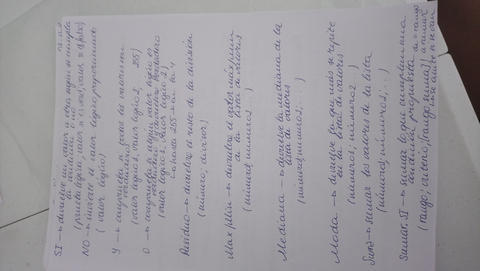 SI → devuelve un valor u otro según se cumpla o no una condición
(prueba lógica, valor si es verd, valor si falso)
NO → invierte el valor lógico proporcionado
(valor lógico)
Y → comprueba si todos los valores son
(valor lógico, valor lógico 2, 255)
O → comprueba si algún valor lógico es
(valor lógico 1, valor lógico 2)
→ hasta 255
Residuo → devuelve el resto de la división
(número, divisor)
Max/Min → devuelve el valor max/min
de la lista de valores
(número1, número2;...)
Mediana → devuelve la mediana de la
lista de valores
(número1, número2;...)
Moda → devuelve lo que más se repite
en la lista de valores
(número1; número2...)
Suma → sumar los valores de la lista
(número1; número2;...)
Sumar.SI → sumar lo que cumpla una
condición propuesta
(rango; criterio; [rango_suma])